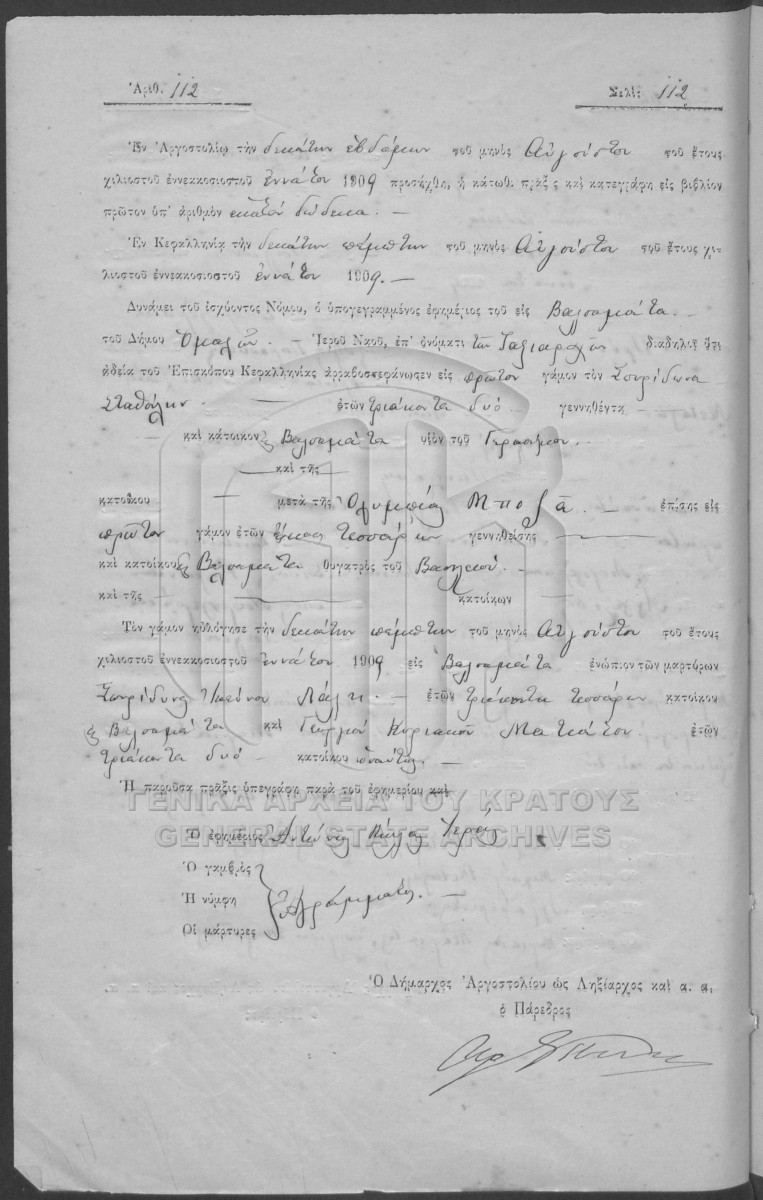 Ἀριθ. 112
Σελί: 112
Ἐν Ἀργοστολίῳ τὴν δεκάτην ἑβδόμην τοῦ μηνὸς Αὐγούστου τοῦ ἔτους
χιλιοστοῦ ἐννεακοσιοστοῦ ἐννάτου 1909 προσήχθη, ἡ κάτωθι πρᾶξις καὶ κατεγράφη εἰς βιβλίον
πρῶτον ὑπ' ἀριθμὸν ἑκατὸν δώδεκα. —
Ἐν Κεφαλληνίᾳ τὴν δεκάτην πέμπτην τοῦ μηνὸς Αὐγούστου τοῦ ἔτους χι-
λιοστοῦ ἐννεακοσιοστοῦ ἐννάτου 1909. —
Δυνάμει τοῦ ἰσχύοντος Νόμου, ὁ ὑπογεγραμμένος ἐφημέριος τοῦ εἰς Βαλσαμάτα. —
τοῦ Δήμου Ὁμαλῶν. — Ἱεροῦ Ναοῦ, ἐπ' ὀνόματι τῶν Ταξιαρχῶν διαδηλοῖ ὅτι
ἀδείᾳ τοῦ Ἐπισκόπου Κεφαλληνίας ἀρραβοστεφάνωσεν εἰς πρῶτον γάμον τὸν Σπυρίδωνα
— ἐτῶν τριάκοντα δυὸ — γεννηθέντα —
— καὶ κάτοικον Βαλσαμάτα υἱὸν τοῦ Γερασίμου. —
καὶ τῆς
κατοίκου — μετὰ τῆς Ὀλυμπίας — ἐπίσης εἰς
πρῶτον γάμον ἐτῶν εἴκοσι τεσσάρων γεννηθείσης —
καὶ κατοίκου Βαλσαμάτα θυγατρὸς τοῦ Βασιλείου. —
καὶ τῆς — κατοίκων —
Τὸν γάμον ηὐλόγησε τὴν δεκάτην πέμπτην τοῦ μηνὸς Αὐγούστου τοῦ ἔτους
χιλιοστοῦ ἐννεακοσιοστοῦ ἐννάτου 1909 εἰς Βαλσαμάτα ἐνώπιον τῶν μαρτύρων
— ἐτῶν τριάκοντα τεσσάρων κατοίκου
Βαλσαμάτα καὶ Γεωργίου Κυριακοῦ Ματιάτου ἐτῶν
τριάκοντα δυὸ — κατοίκου —
Ἡ παροῦσα πρᾶξις ὑπεγράφη παρὰ τοῦ ἐφημερίου καὶ
ΓΕΝΙΚΑ ΑΡΧΕΙΑ ΤΟΥ ΚΡΑΤΟΥΣ
GENERAL STATE ARCHIVES
Ὁ ἐφημέριος Ἀντώνιος Ἱερεύς
Ὁ γαμβρὸς
Ἡ νύμφη Ἀγράμματοι. —
Οἱ μάρτυρες
Ὁ Δήμαρχος Ἀργοστολίου ὡς Ληξίαρχος καὶ α. α.
ὁ Πάρεδρος